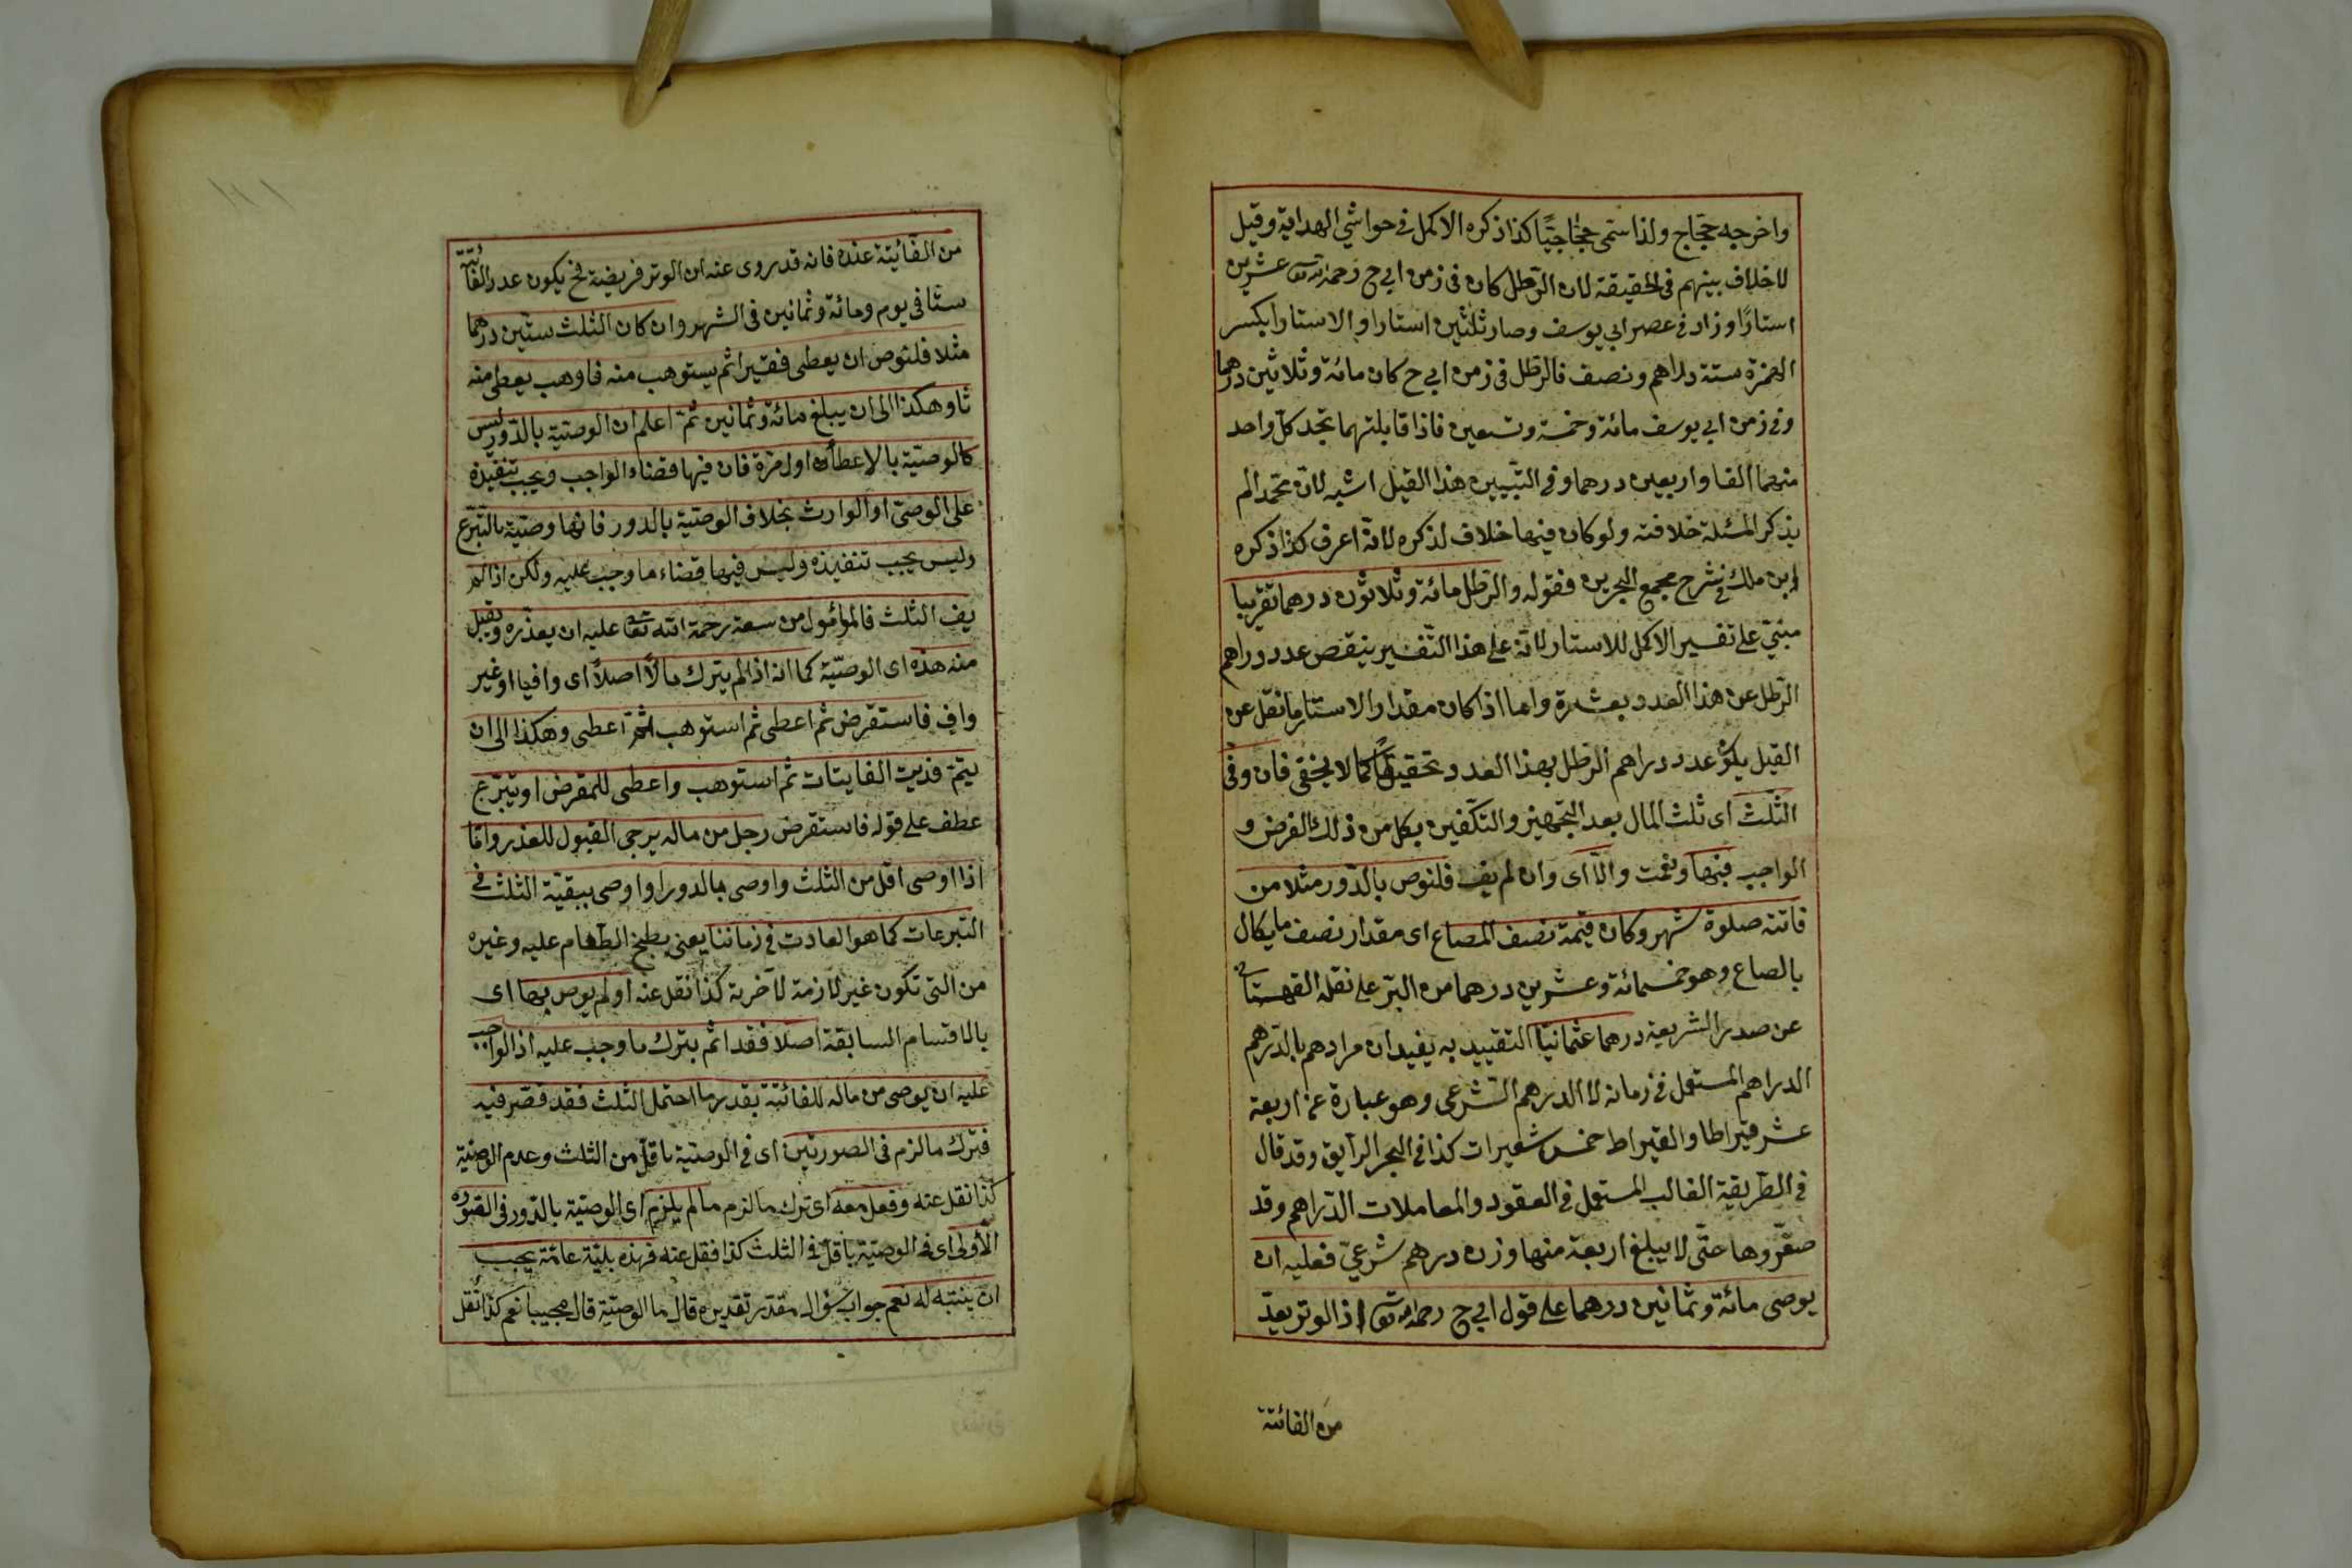 واخرجه حجّاج ولذا سمّى حجّاجيّا كذا ذكره الاكمل فى حواشي الهداية وقيل
لا خلاف بينهم فى الحقيقة لان الرّطل كان فى زمن ابي ح رحمه الله تع عشرين
استارًا وزاد فى عصر ابي يوسف وصار ثلثين استارا والاستار بكسر
الهمزة ستة دراهم ونصف فالرّطل فى زمن ابي ح كان مائة وثلاثين درهما
وفى زمن ابي يوسف مائة وخمسة وتسعين فاذا قابلتهما تجد كلّ واحد
منهما الفا واربعين درهما وفى التبيين هذا القيل اشبه لانّ محمّدا لم
يذكر المسئلة خلافته ولو كان فيها خلاف لذكره لانّه اعرف كذا ذكره
ابن ملك فى شرح مجمع البحرين فقوله والرّطل مائة وثلاثون درهما تقريبا
مبنىّ على تفسير الاكمل للاستار لانّه على هذا التّفسير ينقص عدد دراهم
الرّطل عن هذا العدد بعشرة واما اذا كان مقدار الاستار ما نقل عن
القيل يكون عدد دراهم الرّطل بهذا العدد تحقيقا كما لا يخفى فان وفى
الثّلث اى ثلث المال بعد التّجهيز والتّكفين بكل من ذلك الفرض و
الواجب فبها ونعمت والّا اى وان لم يف فلنوص بالدّور مثلا من
فاتته صلوة شهر وكان قيمة نصف الصاع اى مقدار نصف ما يكال
بالصاع وهو خمسمائة وعشرين درهما من البرّ على نقله القهستانى
عن صدر الشريعة درهما عثمانيّا التقييد به يفيد ان مرادهم بالدّرهم
الدراهم المستعمل فى زمانه لا الدرهم الشّرعى وهو عبارة عن اربعة
عشر قيراطا والقيراط خمس شعيرات كذا فى البحر الرّايق وقد قال
فى الطّريقة الغالب المستعمل فى العقود والمعاملات الدّراهم وقد
صغّروها حتّى لا يبلغ اربعة منها وزن درهم شرعىّ فعليه ان
يوصى مائة وثمانين درهما على قول ابي ح رحمه الله تع اذ الوتر يعدّ
من الفائتة
من الفائيتة عنده فانه قد روى عنه ان الوتر فريضة فح يكون عدد الفائتة
ستّا فى يوم ومائة وثمانين فى الشهر وان كان الثلث ستّين درهما
مثلا فلنوص ان يعطى فقيرا ثم يستوهب منه فاوهب يعطى منه
ثا وهكذا الى ان يبلغ مائة وثمانين ثمّ اعلم ان الوصيّة بالدّور ليس
كالوصيّة بالإعطاء اول مرّة فان فيها قضاء الواجب ويجب تنفيذه
على الوصىّ او الوارث بخلاف الوصيّة بالدور فانها وصيّة بالتبرّع
وليس يجب تنفيذه وليس فيها قضاء ما وجب عليه ولكن اذا لم
يف الثلث فالمؤمول من سعة رحمة الله تعا عليه ان يعذّره ويقبل
منه هذه اى الوصيّة كما انه اذا لم يترك مالًا اصلًا اى وافيا او غير
واف فاستقرض ثم اعطى ثم استوهب ثمّ اعطى وهكذا الى ان
يتمّ فديت الفايتات ثم استوهب واعطى للمقرض او يتبرّع
عطف على قوله فاستقرض رجل من ماله يرجى القبول للعذر وامّا
اذا اوصى اقل من الثلث واوصى بالدور او اوصى ببقيّة الثلث فى
التبرعات كما هو العادت فى زماننا يعنى بطبخ الطّعام عليه وغيره
من التى تكون غير لازمة لآخرية كذا نقل عنه او لم يوص بها اى
بالاقسام السابقة اصلا فقد اثم بترك ما وجب عليه اذ الواجب
عليه ان يوصى من ماله للفائتة بقدر ما احتمل الثلث فقد قصّر فيه
فترك ما لزم فى الصورتين اى فى الوصيّة باقلّ من الثلث وعدم الوصيّة
كذا نقل عنه وفعل معه اى ترك ما لزم ما لم يلزم اى الوصيّة بالدّور فى الصّورة
الأولى اى فى الوصيّة باقلّ فى الثلث كذا نقل عنه فهذه بليّة عامّة يجب
ان ينتبه له نعم جواب سؤال مقدّر تقديره قال ما الوصيّة قال مجيبا نعم كذا نقل